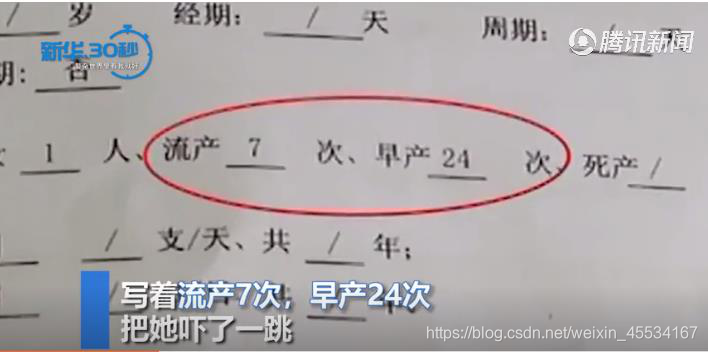 / 岁 经期: / 天 周期: /
新华30秒
腾讯新闻
期: 否
1 人、流产 7 次、早产 24 次、死产 /
/ 支/天、共 / 年;
写着流产7次，早产24次
把她吓了一跳
https://blog.csdn.net/weixin_45534167